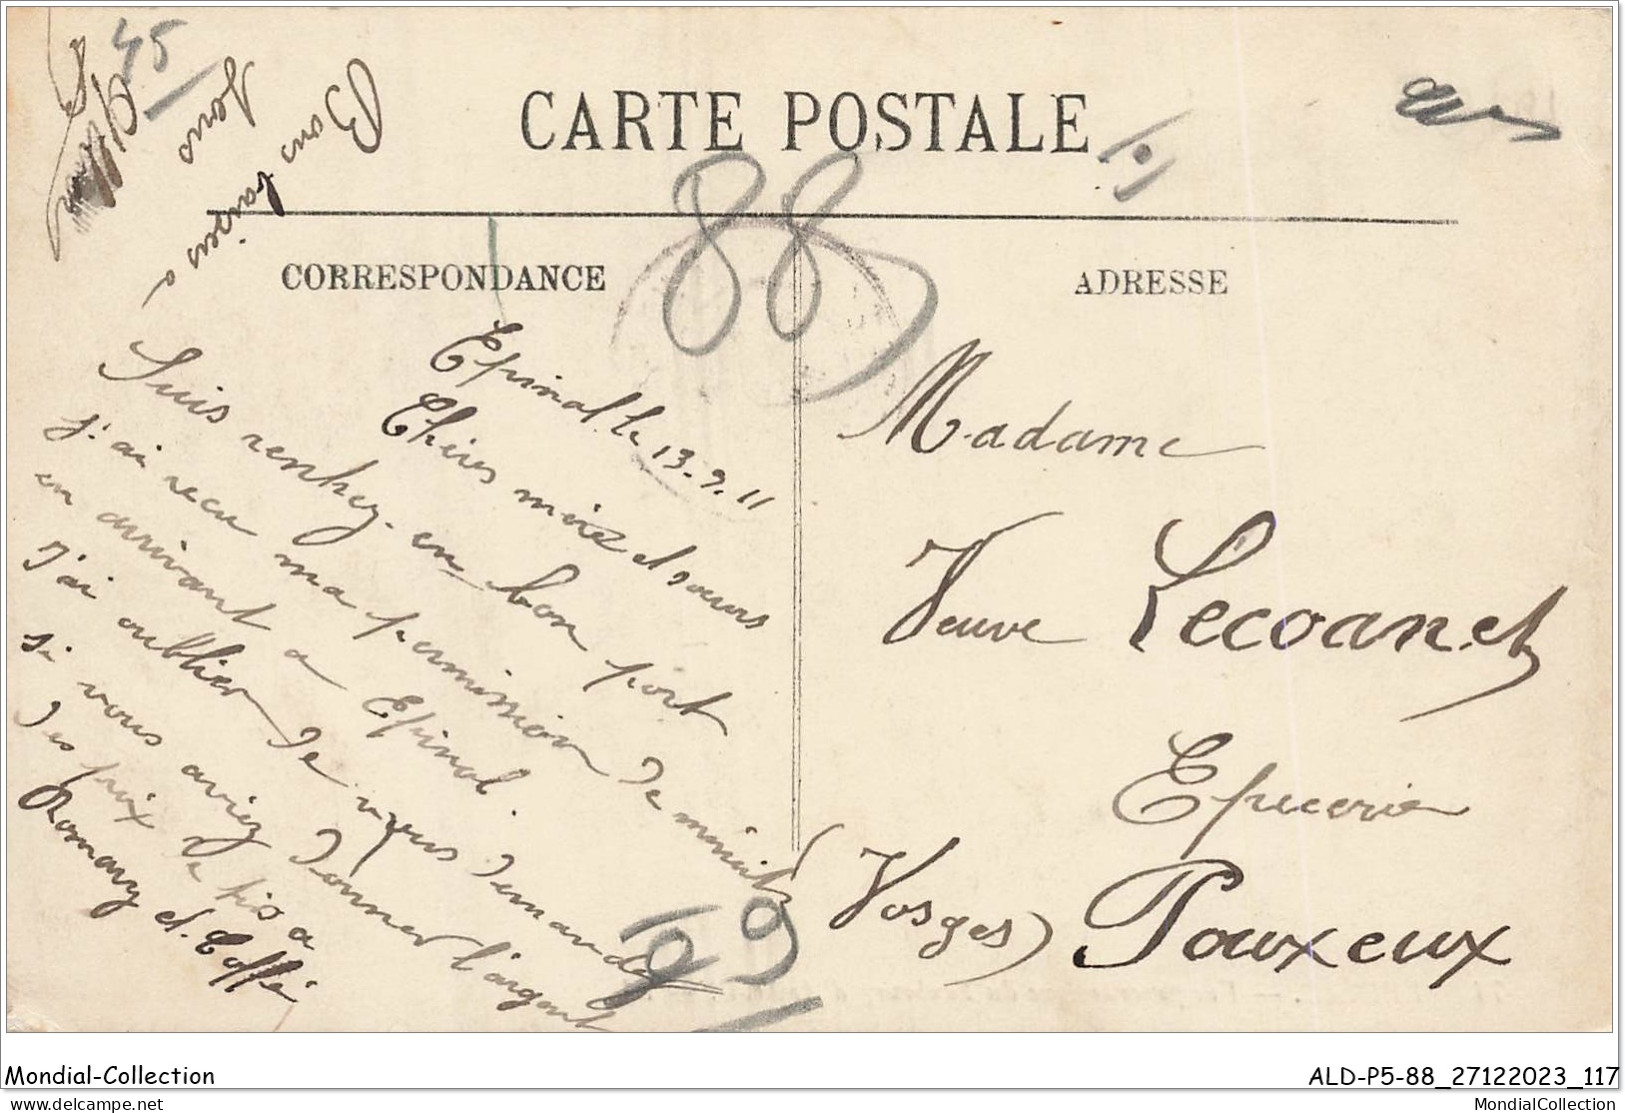 45
CARTE POSTALE
88
CORRESPONDANCE
ADRESSE
Epinal le 13.9.11
Chères mère et sœurs
Suis renhey en bon port
j'ai recu ma permission de minuit
en arrivant a Epinal.
J'ai oublier de vous demander
si vous aviez donner l'argent
des prix de
Romary et Coffé
Bons baisers a
tous
Madame
Veuve Lecoanet
Epicerie
Pouxeux
(Vosges)
Mondial-Collection
ALD-P5-88_27122023_117
www.delcampe.net
MondialCollection